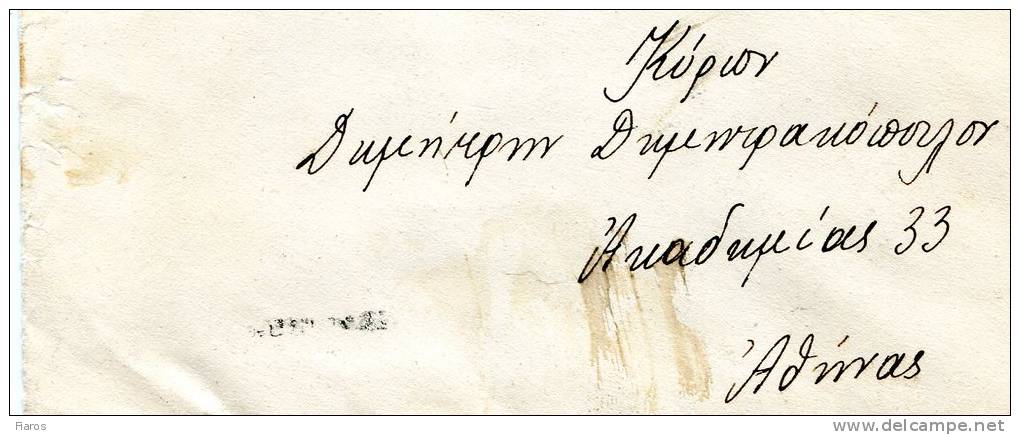 Κύριον
Δημήτριον Δημητρακόπουλον
Ἀκαδημίας 33
Ἀθήνας
Raros
delcampe.net